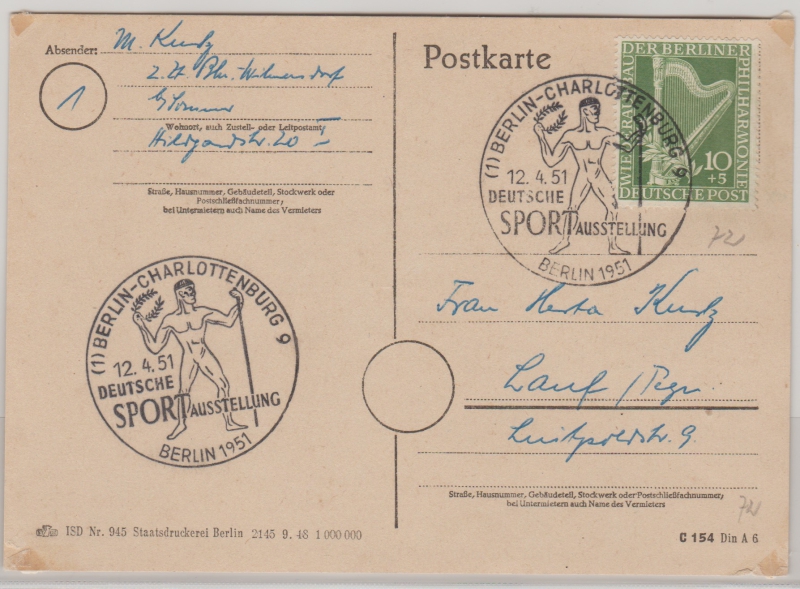 Absender: M. Kurtz
z. Zt. Bln. Wilmersdorf
Wohnort, auch Zustell- oder Leitpostamt
Hildegardstr. 20 I
Straße, Hausnummer, Gebäudeteil, Stockwerk oder
Postschließfachnummer;
bei Untermietern auch Name des Vermieters
1
Postkarte
WIEDERAUFBAU DER BERLINER PHILHARMONIE
10
+5
DEUTSCHE POST
(1) BERLIN-CHARLOTTENBURG 9
12. 4. 51
DEUTSCHE
SPORT AUSSTELLUNG
BERLIN 1951
721
Frau Herta Kurtz
Lauf / Pegn.
Luitpoldstr. 9.
Straße, Hausnummer, Gebäudeteil, Stockwerk oder Postschließfachnummer;
bei Untermietern auch Name des Vermieters
721
(1) BERLIN-CHARLOTTENBURG 9
12. 4. 51
DEUTSCHE
SPORT AUSSTELLUNG
BERLIN 1951
ISD Nr. 945 Staatsdruckerei Berlin 2145 9. 48 1 000 000
C 154 Din A 6